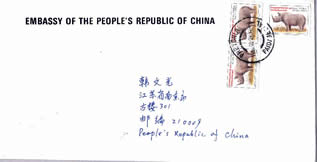 EMBASSY OF THE PEOPLE'S REPUBLIC OF CHINA
韩文
江苏省南京
古楼301
邮编 210009
People's Republic of China